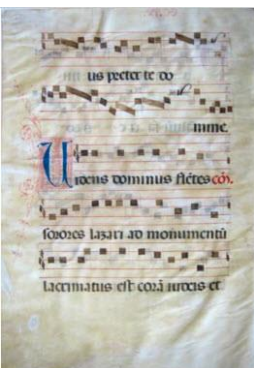 us preter te do
mine.
Videns dominus flētes cō͞.
sorores lazari ad monumentū
lacrimatus est corā iudeis et